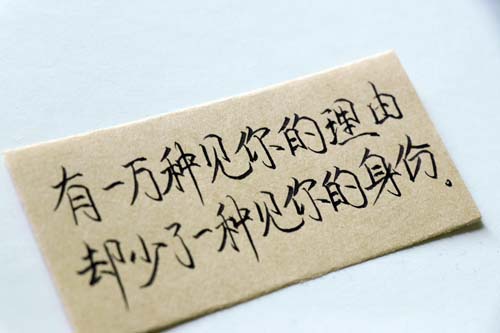 有一万种见你的理由
却少了一种见你的身份.